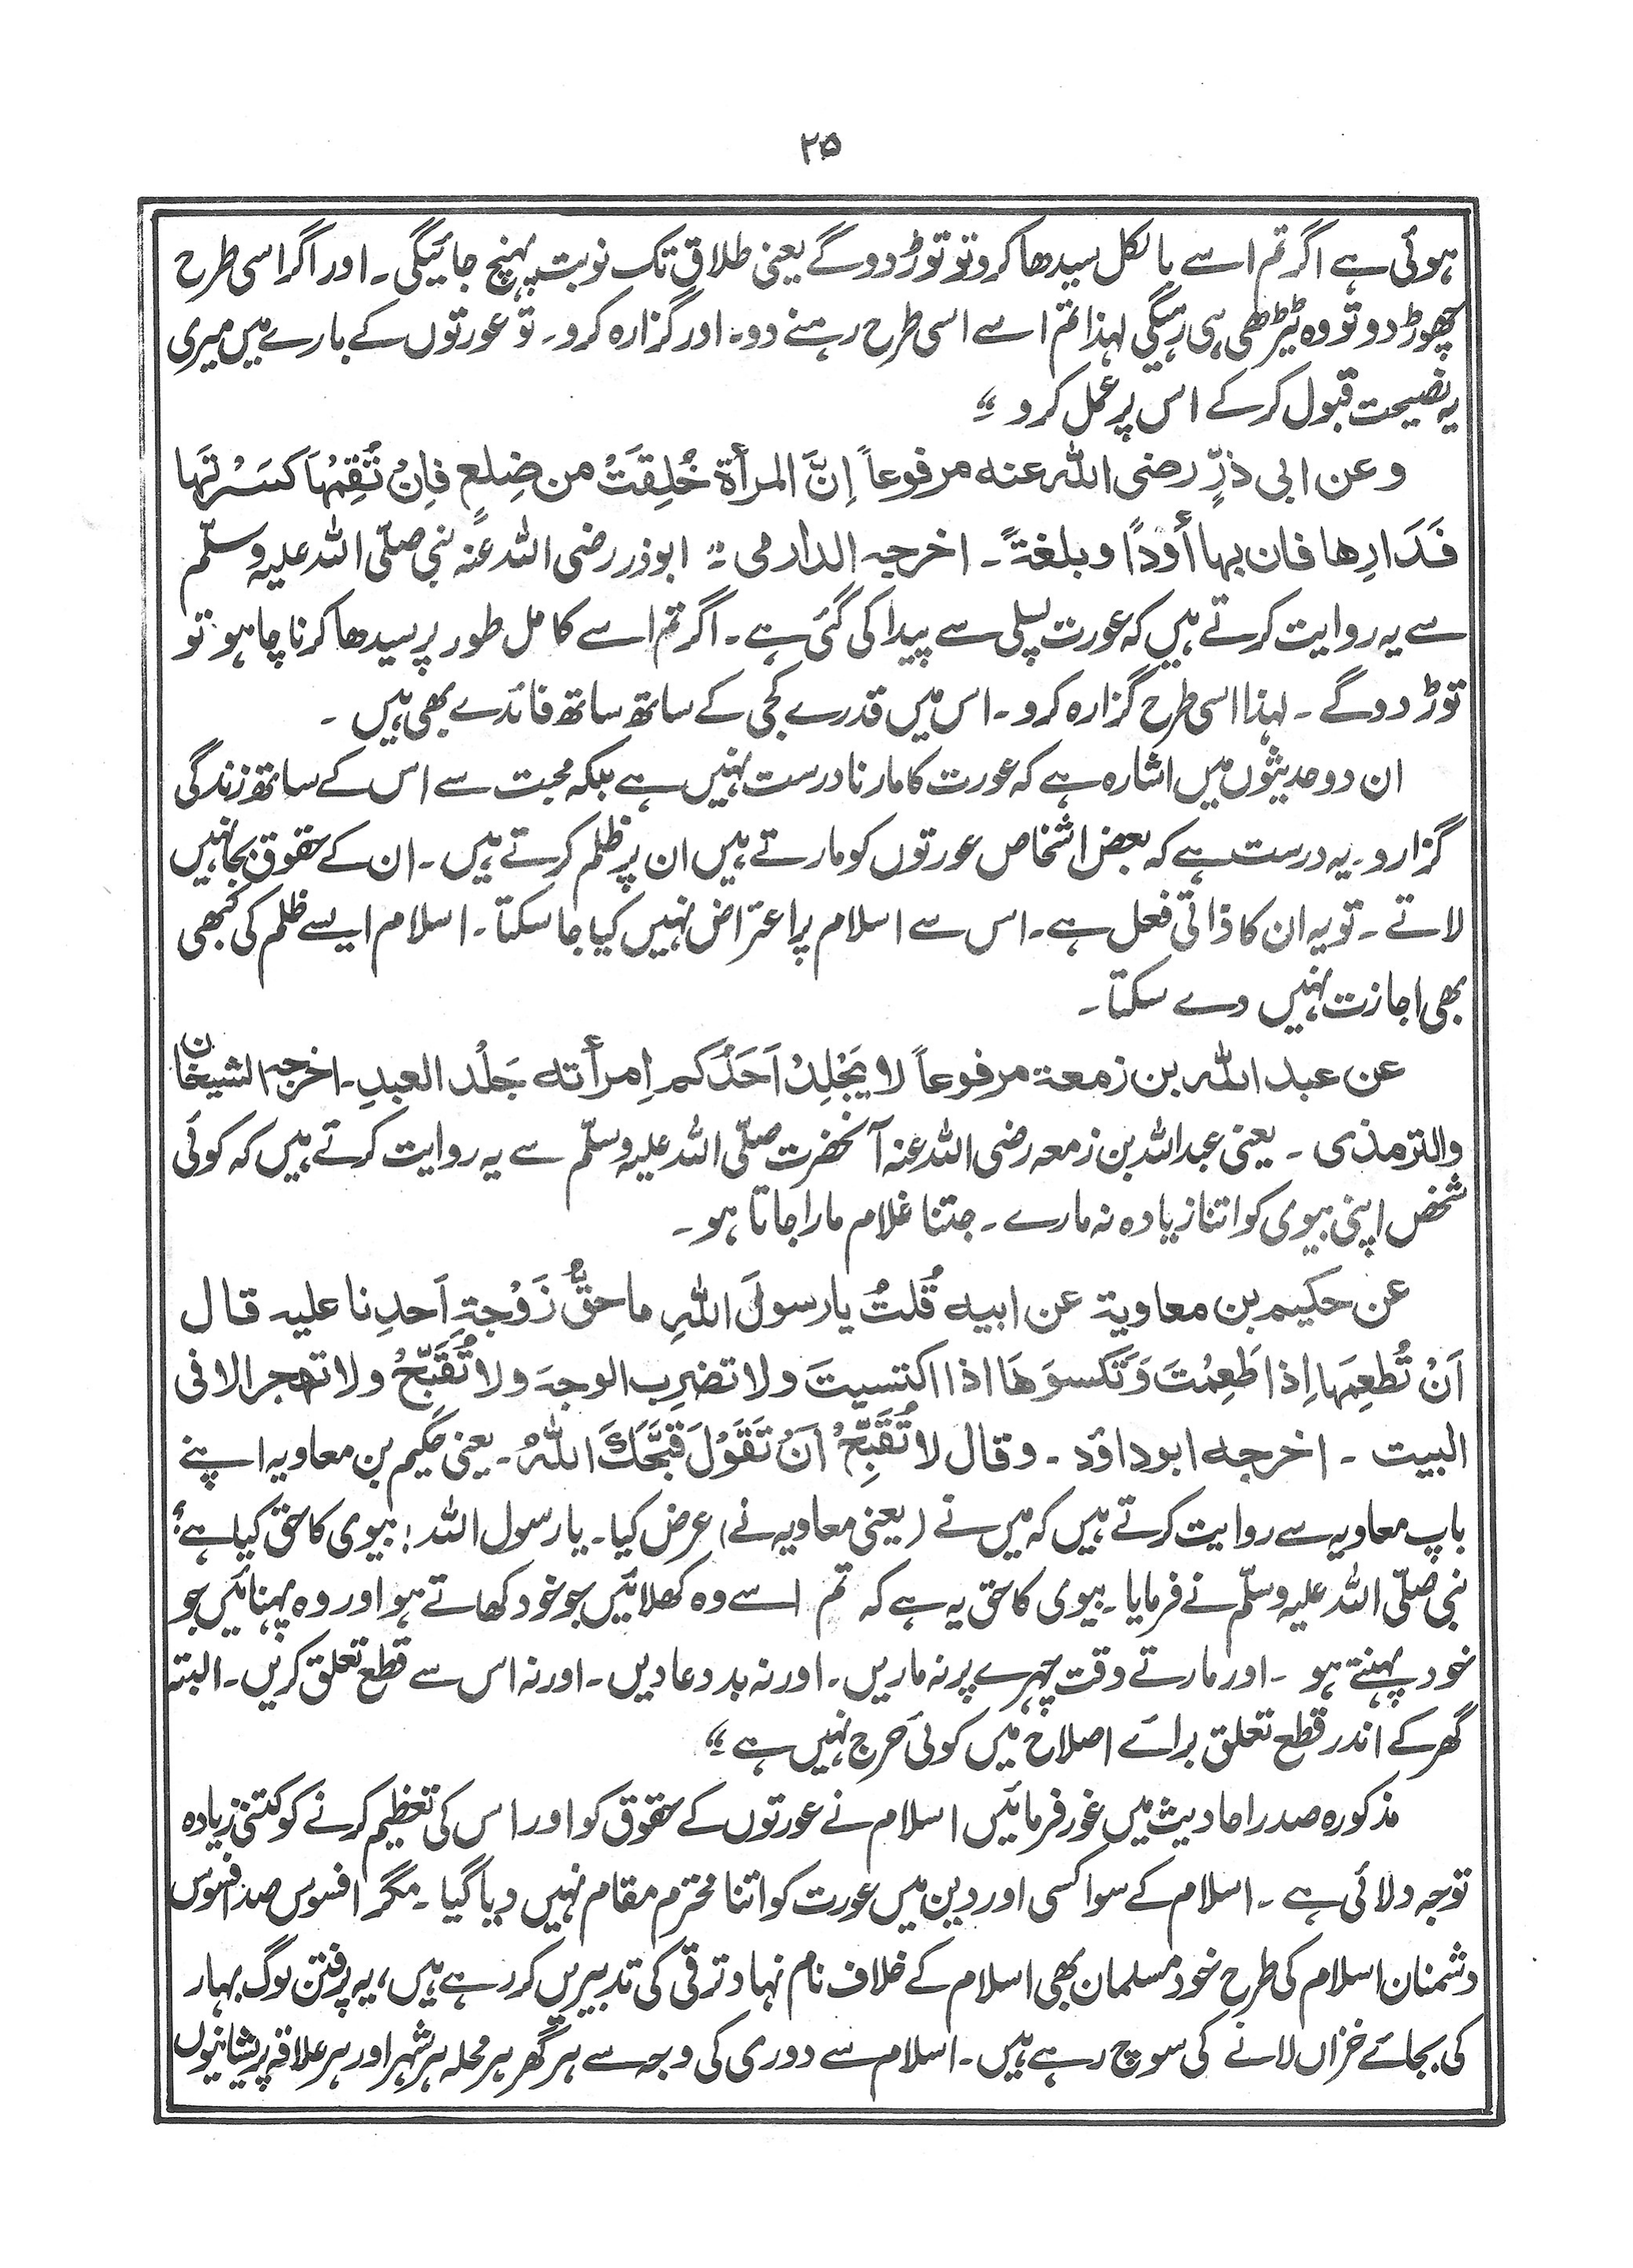 ۲۵
ہوئی ہے اگر تم اسے بالکل سیدھا کرو تو توڑ دو گے یعنی طلاق تک نوبت پہنچ جائیگی۔ اور اگر اسی طرح
چھوڑ دو تو وہ ٹیڑھی ہی رہیگی لہذا تم اسے اسی طرح رہنے دو۔ اور گزارہ کرو۔ تو عورتوں کے بارے میں میری
یہ نصیحت قبول کر کے اس پر عمل کرو ؛؛
و عن ابی ذرٍّ رضی اللہ عنہ مرفوعاً اِنَّ المرأة خُلِقَتْ من ضِلعٍ فاِنْ تُقِمْہَا کَسَرْتَہا
فَدَارِھا فان بہا أوداً و بلغۃً۔ اخرجہ الدارمی ؛؛ ابوذر رضی اللہ عنہ نبی صلّی اللہ علیہ وسلّم
سے یہ روایت کرتے ہیں کہ عورت پسلی سے پیدا کی گئی ہے۔ اگر تم اسے کامل طور پر سیدھا کرنا چاہو تو
توڑ دو گے۔ لہذا اسی طرح گزارہ کرو۔ اس میں قدرے کجی کے ساتھ ساتھ فائدے بھی ہیں۔
ان دو حدیثوں میں اشارہ ہے کہ عورت کا مارنا درست نہیں ہے بلکہ محبت سے اس کے ساتھ زندگی
گزارو۔ یہ درست ہے کہ بعض اشخاص عورتوں کو مارتے ہیں ان پر ظلم کرتے ہیں۔ ان کے حقوق بجا نہیں
لاتے۔ تو یہ ان کا ذاتی فعل ہے۔ اس سے اسلام پر اعتراض نہیں کیا جا سکتا۔ اسلام ایسے ظلم کی کبھی
بھی اجازت نہیں دے سکتا۔
عن عبد اللہ بن زمعۃ مرفوعاً لا یَجْلِدْ اَحَدُکم اِمرأتہ جَلْد العبدِ۔ اخرجہ الشیخان
والترمذی۔ یعنی عبداللہ بن زمعہ رضی اللہ عنہ آنحضرت صلّی اللہ علیہ وسلّم سے یہ روایت کرتے ہیں کہ کوئی
شخص اپنی بیوی کو اتنا زیادہ نہ مارے۔ جتنا غلام مارا جاتا ہو۔
عن حکیم بن معاویۃ عن ابیہ قُلتُ یا رسولَ اللہِ ما حقُّ زَوْجۃِ اَحدِنا علیہ قال
اَنْ تُطعِمَہا اِذا طَعِمْتَ وَتَکسوَھَا اذا اکتسیتَ ولا تضرِبِ الوجہَ ولا تُقَبِّحْ ولا تہجر الا فی
البیت ۔ اخرجہ ابوداؤد ۔ وقال لا تُقَبِّحْ اَنْ تَقَوْلَ قَبَّحَکَ اللہُ۔ یعنی حکیم بن معاویہ اپنے
باپ معاویہ سے روایت کرتے ہیں کہ میں نے (یعنی معاویہ نے) عرض کیا۔ یا رسول اللہ! بیوی کا حق کیا ہے؟
نبی صلّی اللہ علیہ وسلّم نے فرمایا۔ بیوی کا حق یہ ہے کہ تم اسے وہ کھلائیں جو خود کھاتے ہو اور وہ پہنائیں جو
خود پہنتے ہو ۔ اور مارتے وقت چہرے پر نہ ماریں۔ اور نہ بد دعا دیں۔ اور نہ اس سے قطع تعلق کریں۔ البتہ
گھر کے اندر قطع تعلق برائے اصلاح میں کوئی حرج نہیں ہے ؛؛
مذکورہ صدر احادیث میں غور فرمائیں اسلام نے عورتوں کے حقوق کو اور اس کی تعظیم کرنے کو کتنی زیادہ
توجہ دلائی ہے ۔ اسلام کے سوا کسی اور دین میں عورت کو اتنا محترم مقام نہیں دیا گیا ۔ مگر افسوس صد افسوس
دشمنان اسلام کی طرح خود مسلمان بھی اسلام کے خلاف نام نہاد ترقی کی تدبیریں کر رہے ہیں، یہ پرفتن لوگ بہار
کی بجائے خزاں لانے کی سوچ رہے ہیں۔ اسلام سے دوری کی وجہ سے ہر گھر ہر محلہ ہر شہر اور ہر علاقہ پریشانیوں